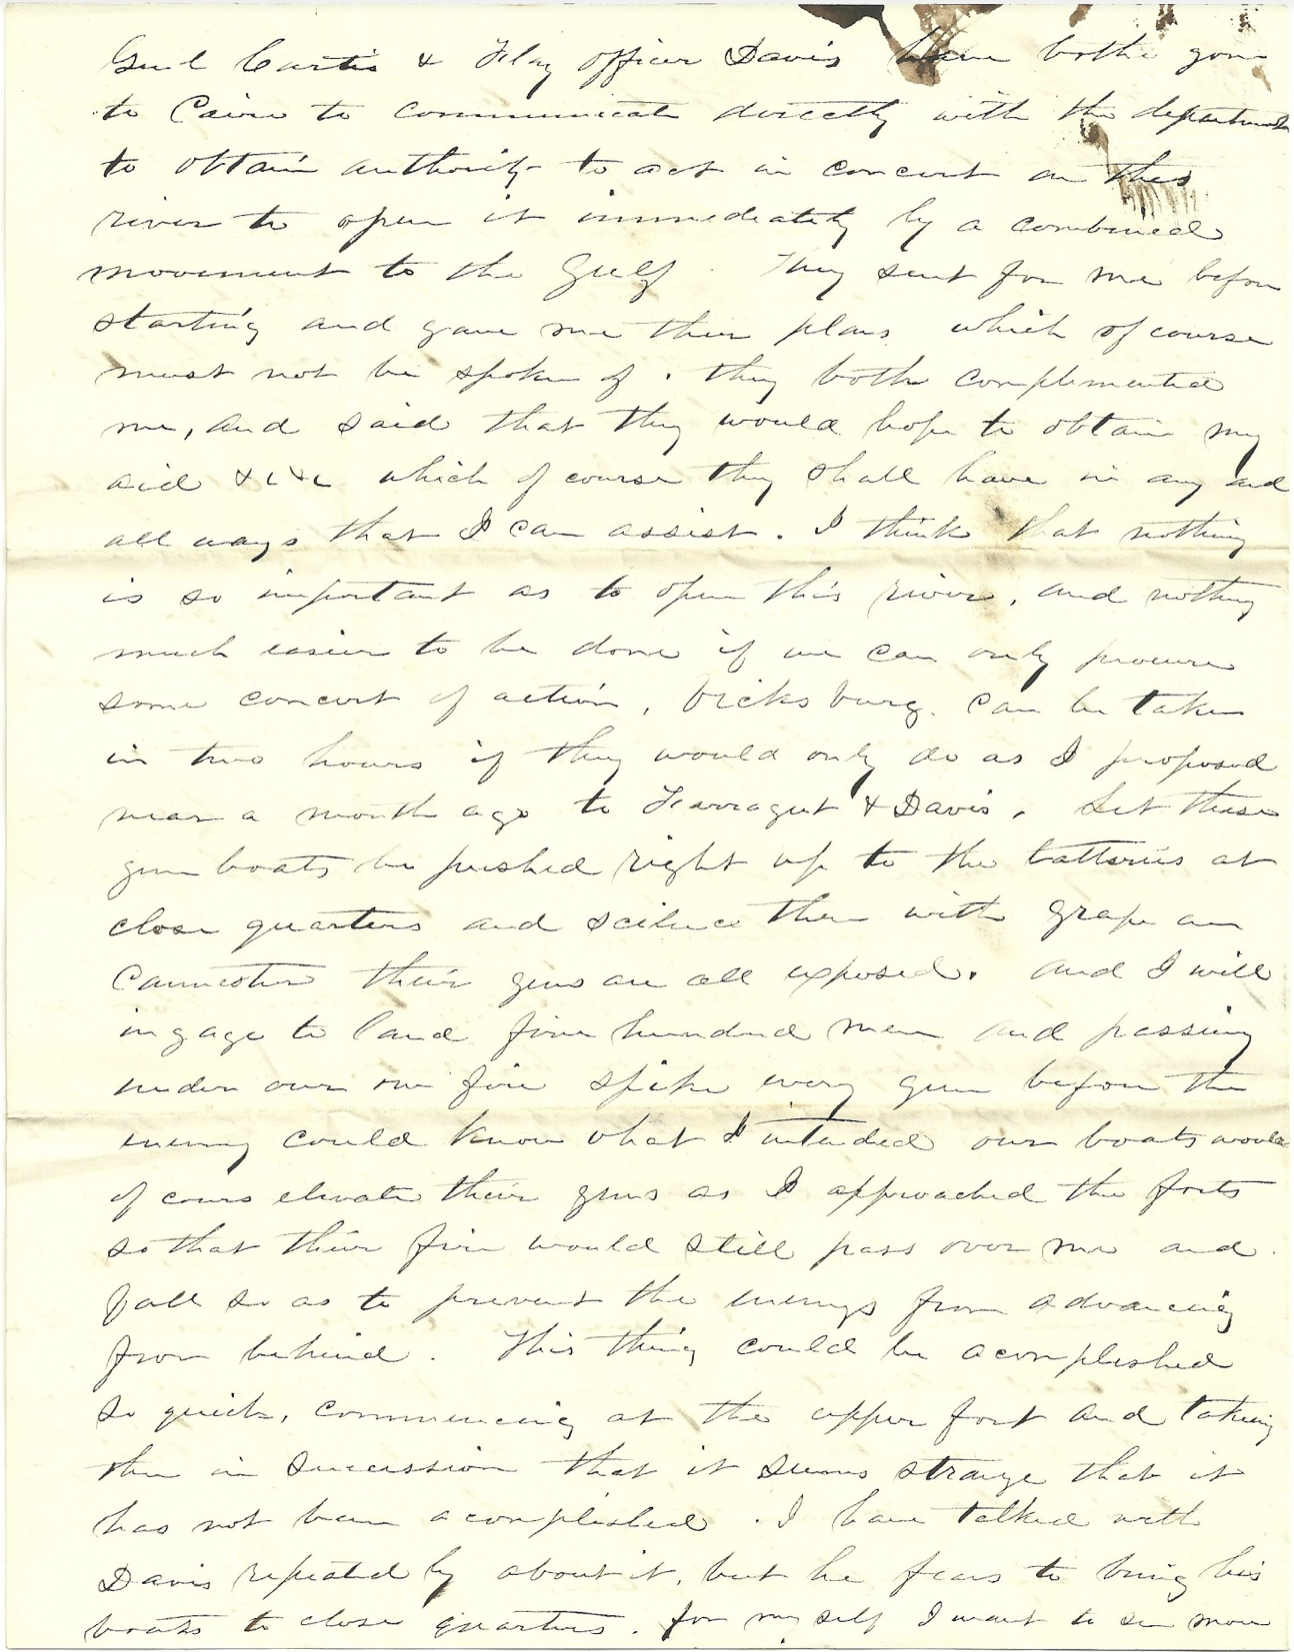 Genl Curtis & Flag officer Davis have bothe gone
to Cairo to communicate directly with the department
to obtain authority to act in concert on this
river to open it immediately by a combined
movement to the Gulf. They sent for me before
starting and gave me their plans which of course
must not be spoken of. they both complimented
me, and said that they would hope to obtain my
aid &c &c which of course they shall have in any and
all ways that I can assist. I think that nothing
is so important as to open this river, and nothing
much easier to be done if we can only procure
some concert of action, Vicksburg can be taken
in two hours if they would only do as I proposed
near a month ago to Farragut & Davis. Let these
gun boats be pushed right up to the batteries at
close quarters and scilence them with grape an
Cannester their guns are all exposed. and I will
ingage to land five hundred men and passing
under our own fire spike every gun before the
enemy could know what I intended our boats would
of cours elevate their guns as I approached the forts
so that their fire would still pass over me and
fall so as to prevent the enemys from advancing
from behind. This thing could be acomplished
so quick, commencing at the upper fort and taking
them in succession that it seems strange that it
has not been acomplished. I have talked with
Davis repeatedly about it, but he fears to bring his
boats to close quarters. for my self I want to see more